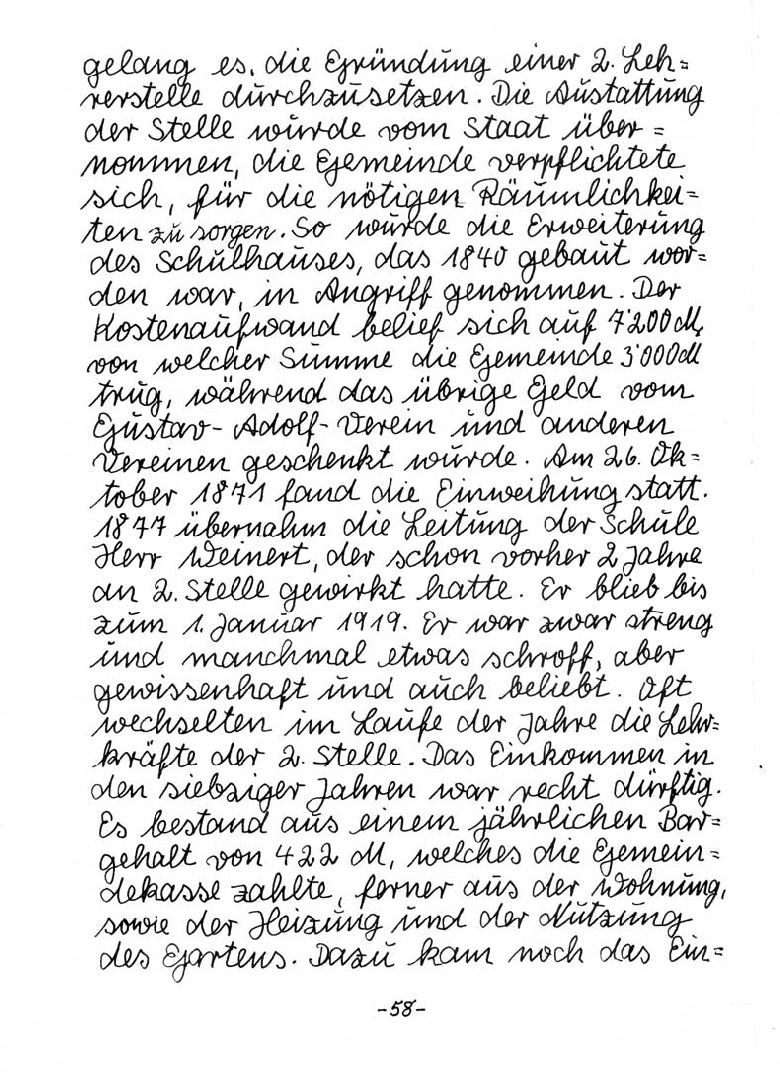 gelang es, die Gründung einer 2. Leh=
rerstelle durchzusetzen. Die Austattung
der Stelle wurde vom Staat über=
nommen, die Gemeinde verpflichtete
sich, für die nötigen Räumlichkei=
ten zu sorgen. So wurde die Erweiterung
des Schulhauses, das 1840 gebaut wor=
den war, in Angriff genommen. Der
Kostenaufwand belief sich auf 7'200 M,
von welcher Summe die Gemeinde 3'000 M
trug, während das übrige Geld vom
Gustav-Adolf-Verein und anderen
Vereinen geschenkt wurde. Am 26. Ok=
tober 1871 fand die Einweihung statt.
1877 übernahm die Leitung der Schule
Herr Weinert, der schon vorher 2 Jahre
an 2. Stelle gewirkt hatte. Er blieb bis
zum 1. Januar 1919. Er war zwar streng
und manchmal etwas schroff, aber
gewissenhaft und auch beliebt. Oft
wechselten im Laufe der Jahre die Lehr=
kräfte der 2. Stelle. Das Einkommen in
den siebziger Jahren war recht dürftig.
Es bestand aus einem jährlichen Bar=
gehalt von 422 M, welches die Gemein=
dekasse zahlte, ferner aus der Wohnung,
sowie der Heizung und der Nutzung
des Gartens. Dazu kam noch das Ein=
-58-